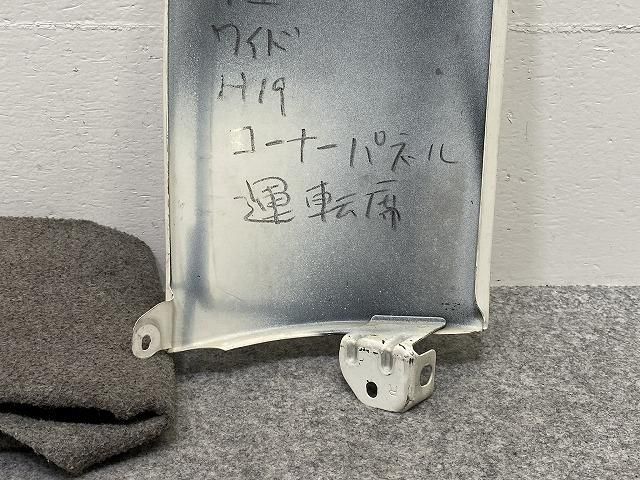 ワイド
H19
コーナーパネル
運転席
R